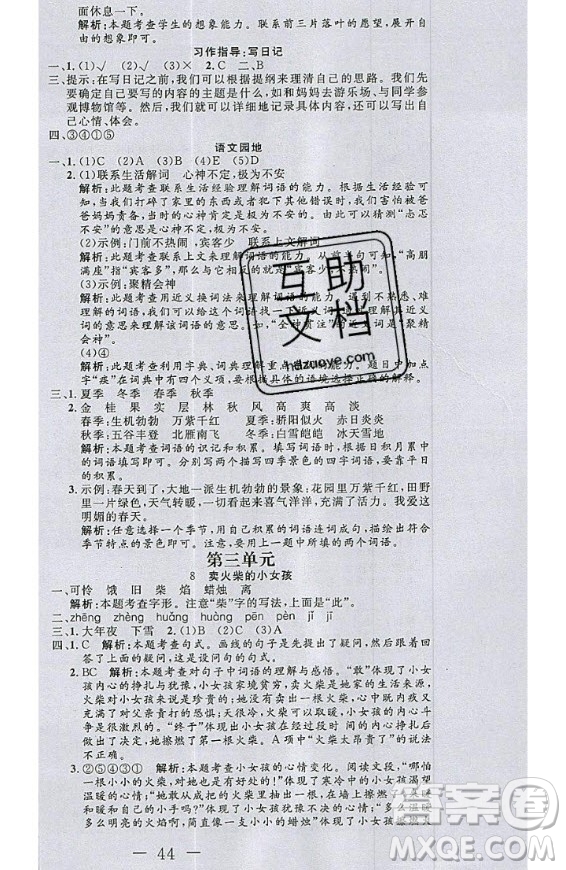 面休息一下。
解析：本题考查学生的想象能力。联系前三片落叶的愿望，展开
想象作答即可。
习作指导：写日记
一、1.(1)√ (2)√ (3)× 2.C 二、B
三、提示：在写日记之前，我们可以根据提纲来理清自己的思路。我们先
要确定自己要写的内容的主题是什么，如和妈妈去游乐场、与同学参
观博物馆等。然后，我们可以详细地记录，同时在记录中可以写出自
己心情、体会。
四、③④①⑤
语文园地
一、1.(1)C (2)A (3)B (4)E (5)D
2.(1)联系生活解词 心神不定，极为不安
解析：此题考查联系生活经验理解词语的能力。联系生活，例如，
当我们失手打碎了家里的东西或者犯下其他错误时，我们害怕被
爸爸妈妈责备，当时的心神肯定是不安的，因此可以猜测“忐忑
不安”的意思是心神不定，极为不安。
(2)示例：门前不热闹，宾客少 联系上文解词
解析：此题考查联系上文来理解词语的能力。从前
满座”指“宾客多”，那么与
(3)示例：聚精会神
解析：此题考查用近义换词法来理解词语的能力。遇到不熟悉、难
理解的词语时，我们可以给
义词的意思来理解该词语的意思，如“全神贯注”可以说是“聚精
会神”。
(4)④
解析：此题考查利用字典、词典理解词语意思的能力。题目中指
定字“疲”在词典中有四个义项，要根据具体的语境选择正确的解释。
三、1.夏季 冬季 春季 秋季
2.金 桂 果 实 层 林 秋 风 高 爽 高 淡
春季：生机勃勃 万紫千红 夏季：骄阳似火 赤日炎炎
秋季：五谷丰登 北雁南飞 冬季：白雪皑皑 冰天雪地
解析：本题考查词语的识记和积累。根据日积月累中
的词语填写即可。分别写描写四季景色的四字词语，要注重平日
的积累。
3.示例：春天到了，大地一派生机勃勃的景象：花园里万紫千红，田野
里一片绿色，天气转暖，一切显得喜气洋洋，充满了希望。我爱这
明媚的春天。
解析：任意选择一个季节，用自己积累的词语连词成句，描绘出符合
季节特点的景色即可。
第三单元
8 卖火柴的小女孩
一、可怜 饿 旧 柴 焰 蜡烛 离
解析：本题考查字形。注意“柴”字的写法，上面是“此”。
二、zhēng zhèng huǎng huàng pēn pèn jǐ jī
三、1.大年夜 下雪 2.(1)B (2)C (3)A
四、1.C 解析：本题考查句式。画线的句子先是提出了疑问，然后又进
行了解答，属于设问。
2.BC 解析：本题考查对句子中词语的理解与感悟。“敢”体现了小女
孩内心的挣扎与犹豫，小女孩家境贫穷，卖火柴是她家的收入来
源，火柴对于小女孩来说很重要，她不敢随意浪费火柴，也充满了
对父亲责打的恐惧。天很冷，火柴又可以取暖，小女孩心动了，但
也很犹豫。“终于”体现了小女孩在经过长时间的内心挣扎后，做
出了用火柴取暖的决定。A项中“火柴太昂贵了”的说法是不
正确的。
3.②⑤④③① 解析：本题考查小女孩的心情变化。阅读文段，“哪
怕一根小小的火柴，对她也是有好处的”体现了寒冷中的小女孩渴望
温暖的心情；“她敢从成把的火柴里抽出一根，在墙上擦燃了，来暖
和暖和自己的小手吗？”体现了小女孩非常犹豫的心情；“多么温暖
多么明亮的火焰啊，简直像一支小小的蜡烛”体现了小女孩感受到
44
互助
文档
hdzuoye.com
答案圈
MXQE.COM